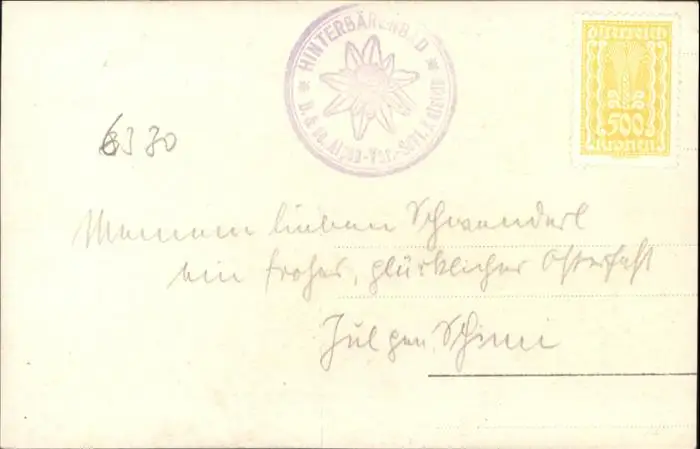 HINTERBÄRENBAD
D. & Öe. Alpen-Ver.-Sekt. Kufstein
Österreich
500
Kronen
6330
Meinem lieben Schwanderl
ein frohes, glückliches Osterfest